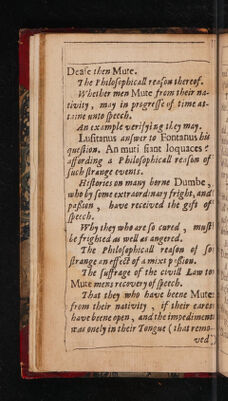 Deafe then Mute.
The Philosophicall reason thereof.
Whether men Mute from their na-
tivity, may in progresse of time at-
taine unto speech.
An example verifying they may.
Lusitanus answer to Fontanus his
question. An muti fiant loquaces?
affording a Philosophicall reason of
such strange events.
Histories on many borne Dumbe,
who by some extraordinary fright, and
passion, have received the gift of
speech.
Why they who are so cured, must
be frighted as well as angered.
The Philosophicall reason of so
strange an effect of a mixt passion.
The suffrage of the civill Law to
Mute mens recovery of speech.
That they who have beene Mute
from their nativity, if their eares
have beene open, and the impediment
was onely in their Tongue (that remo-
ved